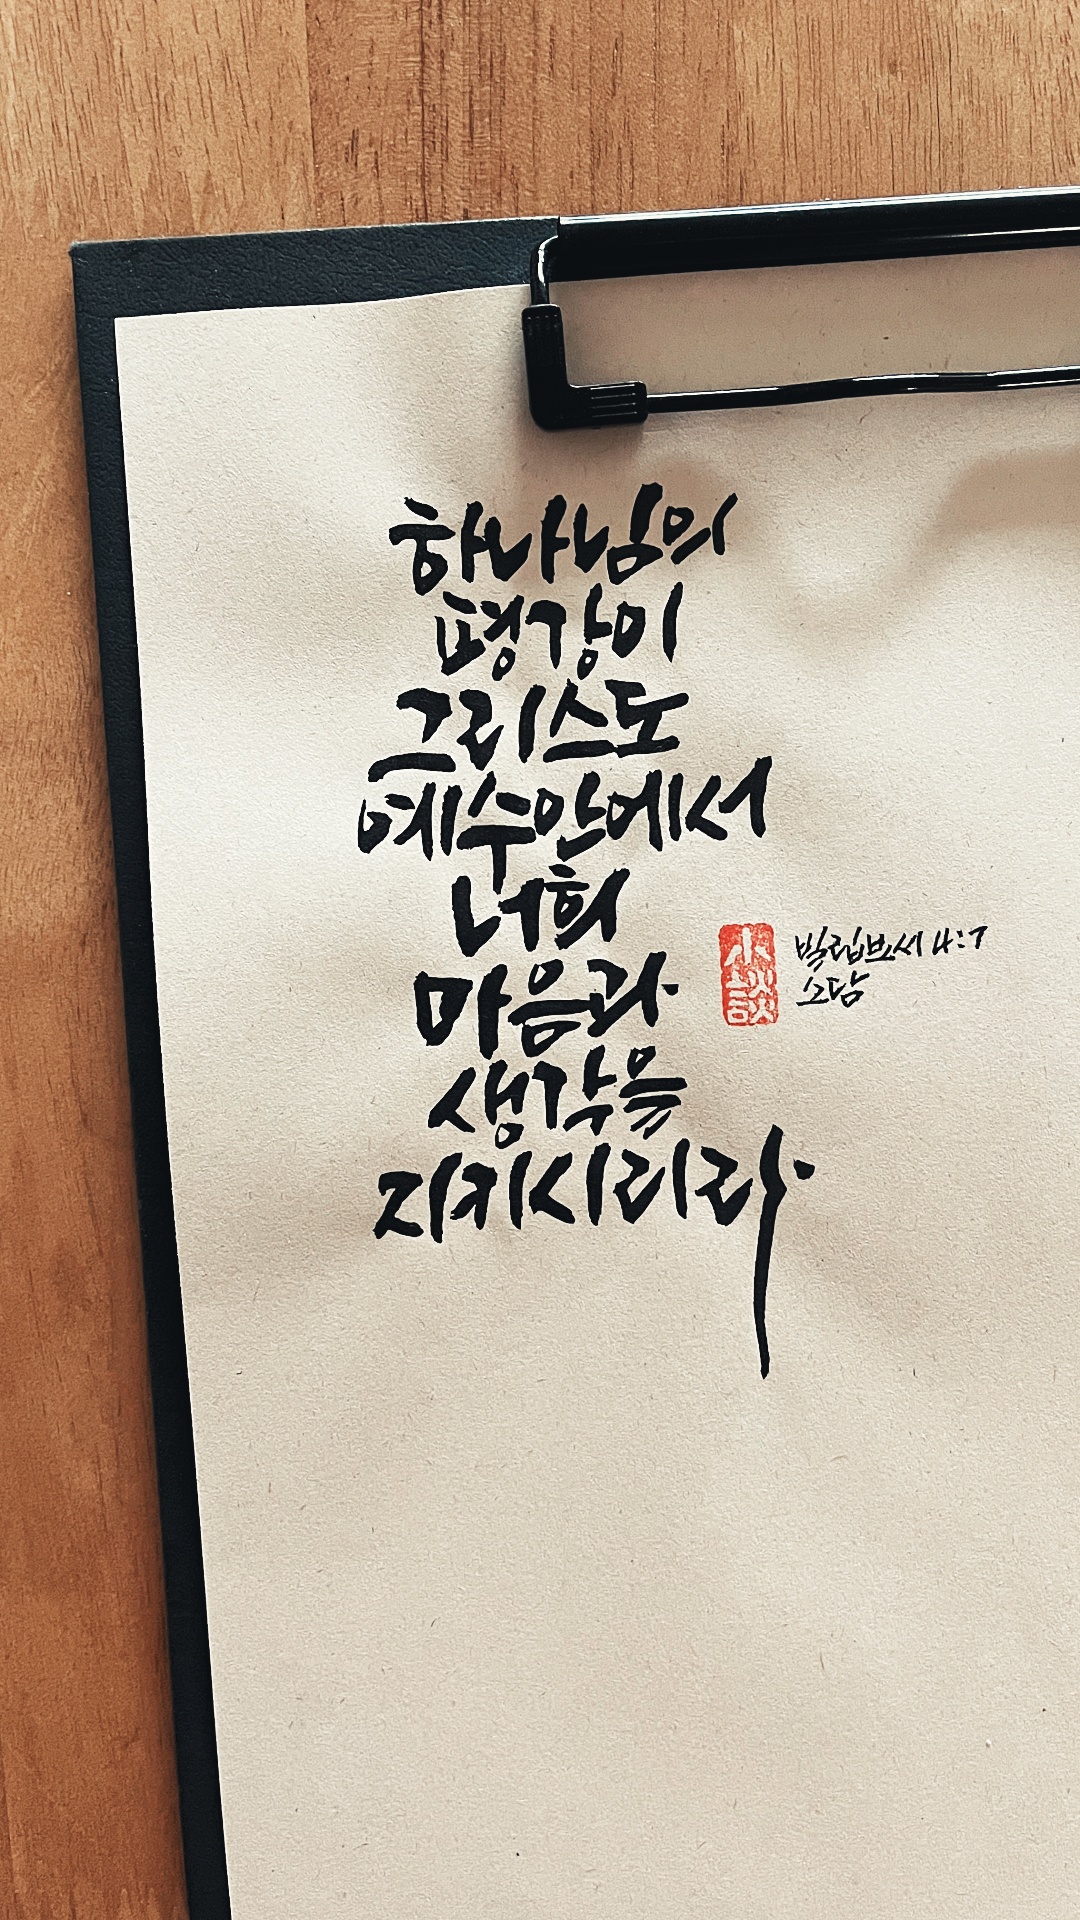 하나님의
평강이
그리스도
예수안에서
너희
마음과
생각을
지키시리라
小談
빌립보서 4:7
소담